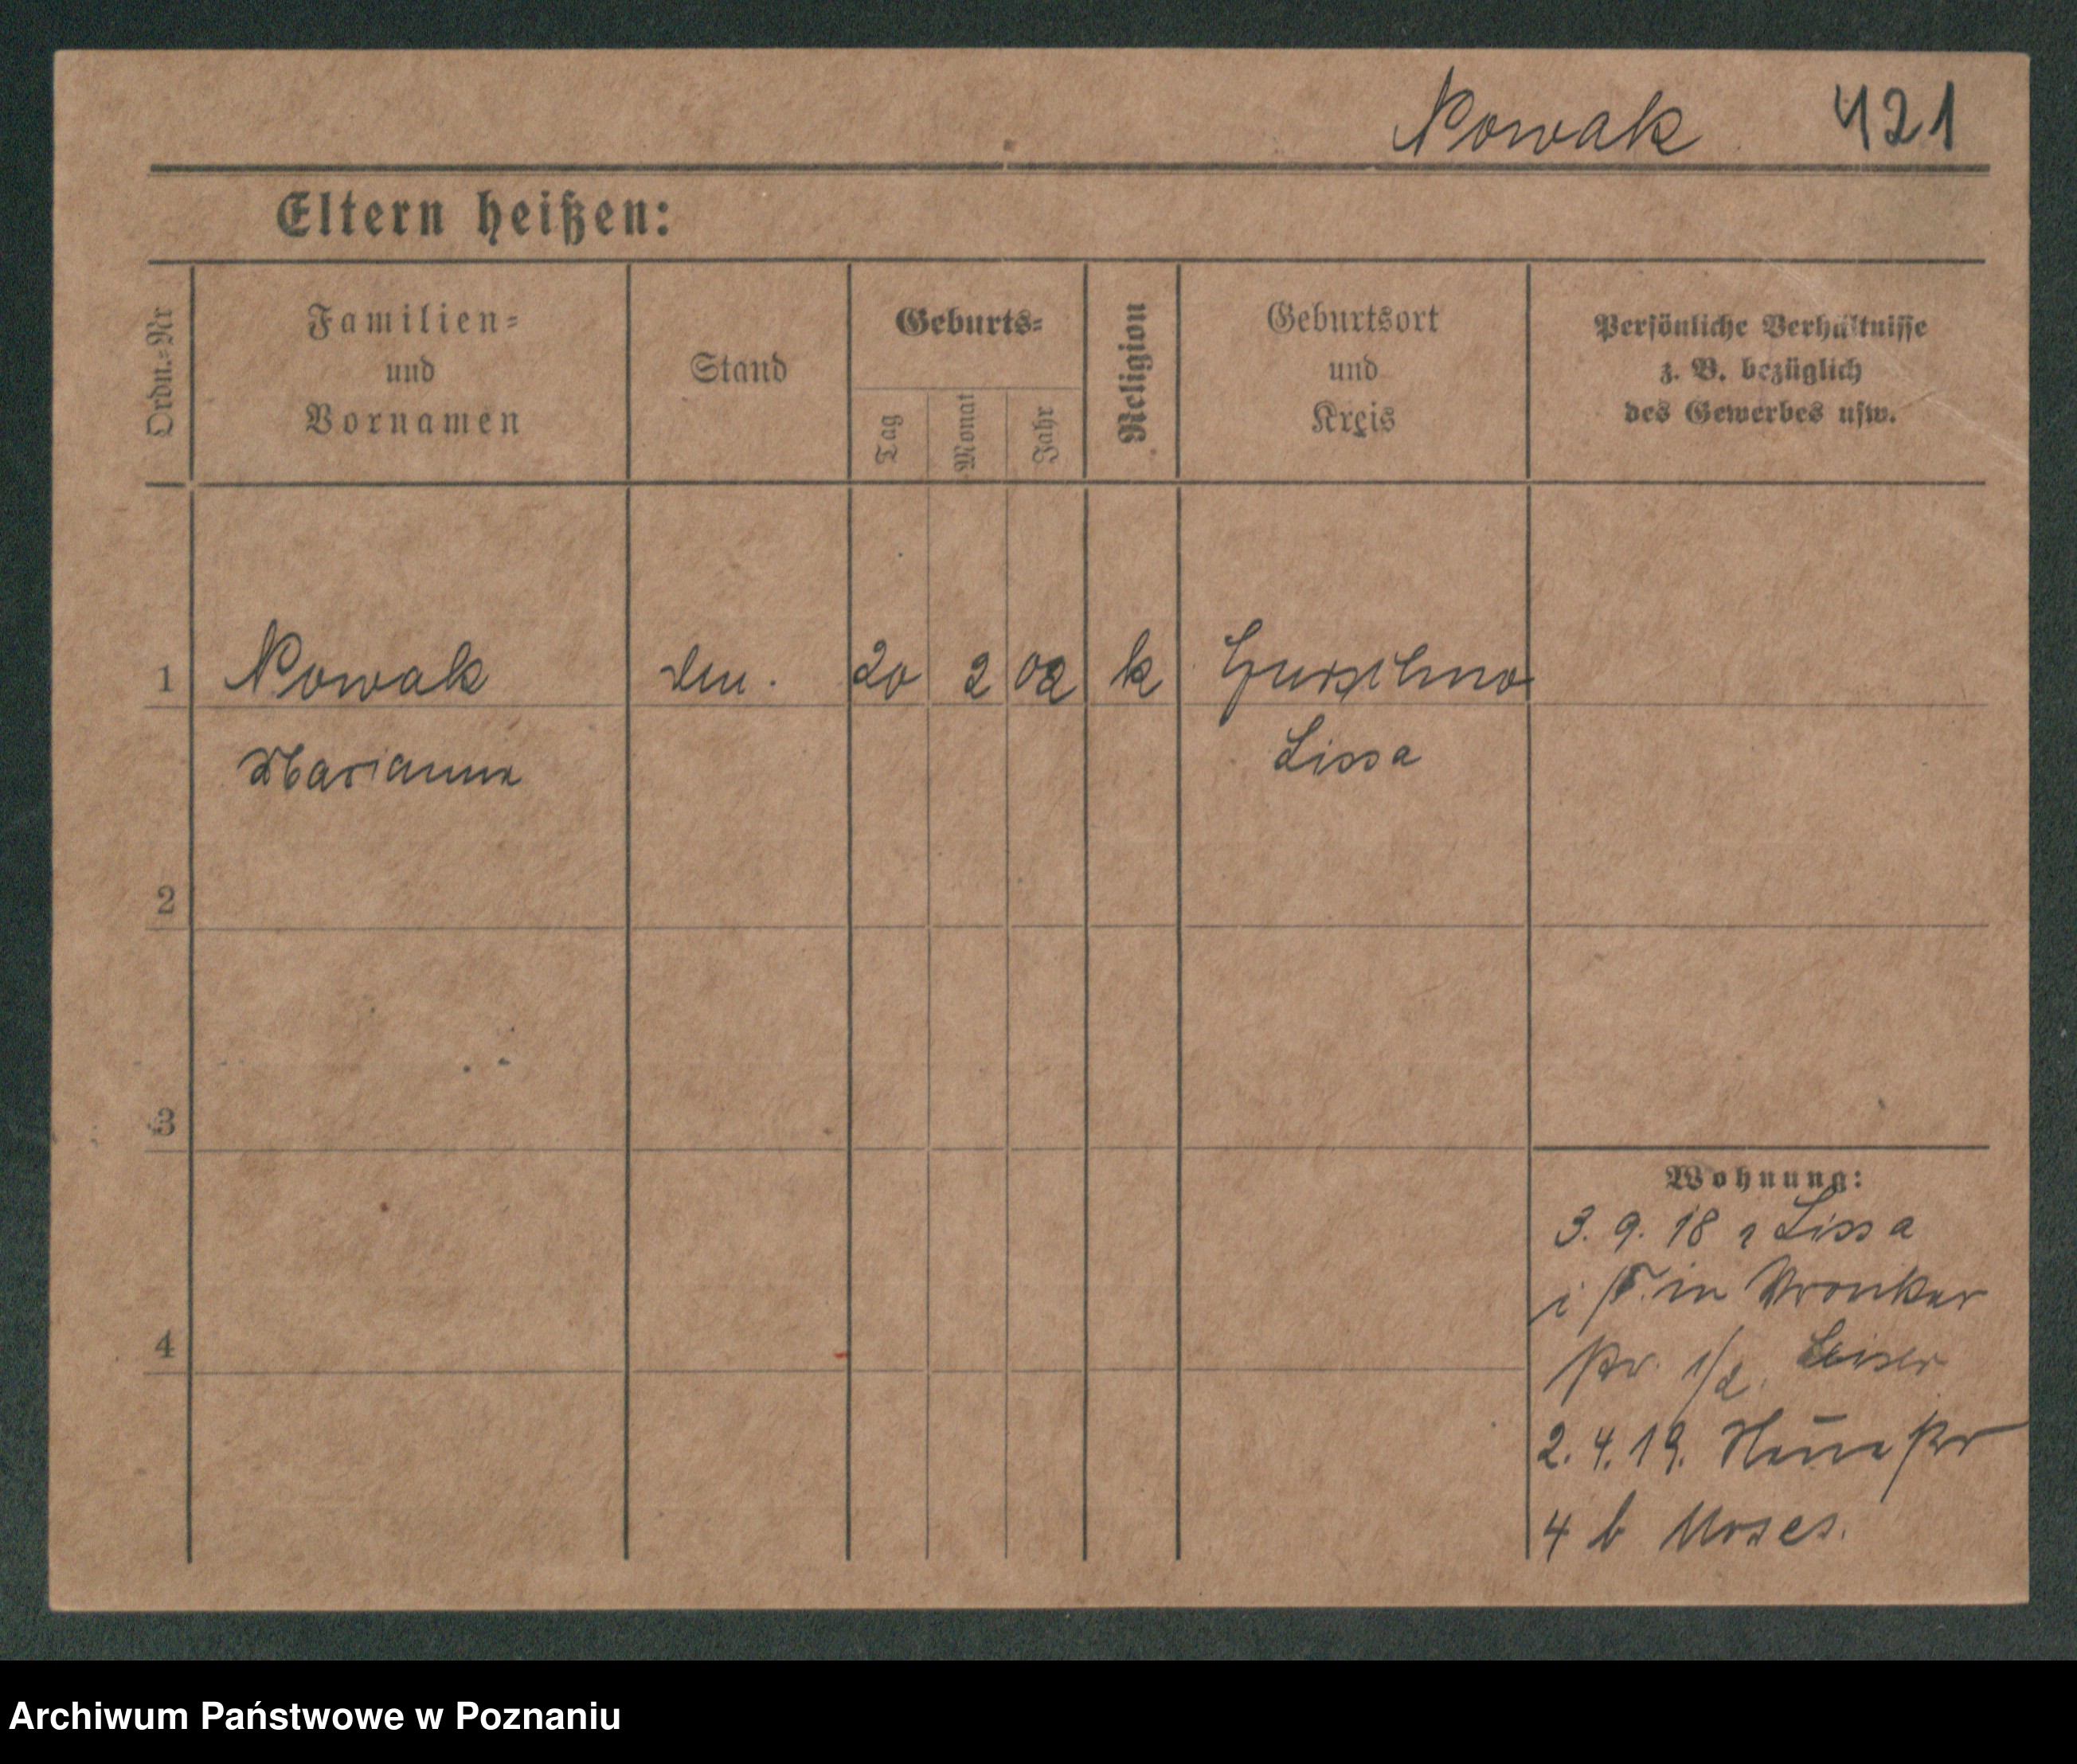 Nowak 421
Eltern heißen:
Ordn.-Nr
Familien-
und
Vornamen
Stand
Geburts-
Tag
Monat
Jahr
Religion
Geburtsort
und
Kreis
Persönliche Verhältnisse
z. B. bezüglich
des Gewerbes usw.
1 Nowak 20 2 02 k
Marianna Lissa
2
3
4
Wohnung:
3. 9. 18 Lissa
i P. in Wronker
2. 4. 19.
4 b Moses.
Archiwum Państwowe w Poznaniu